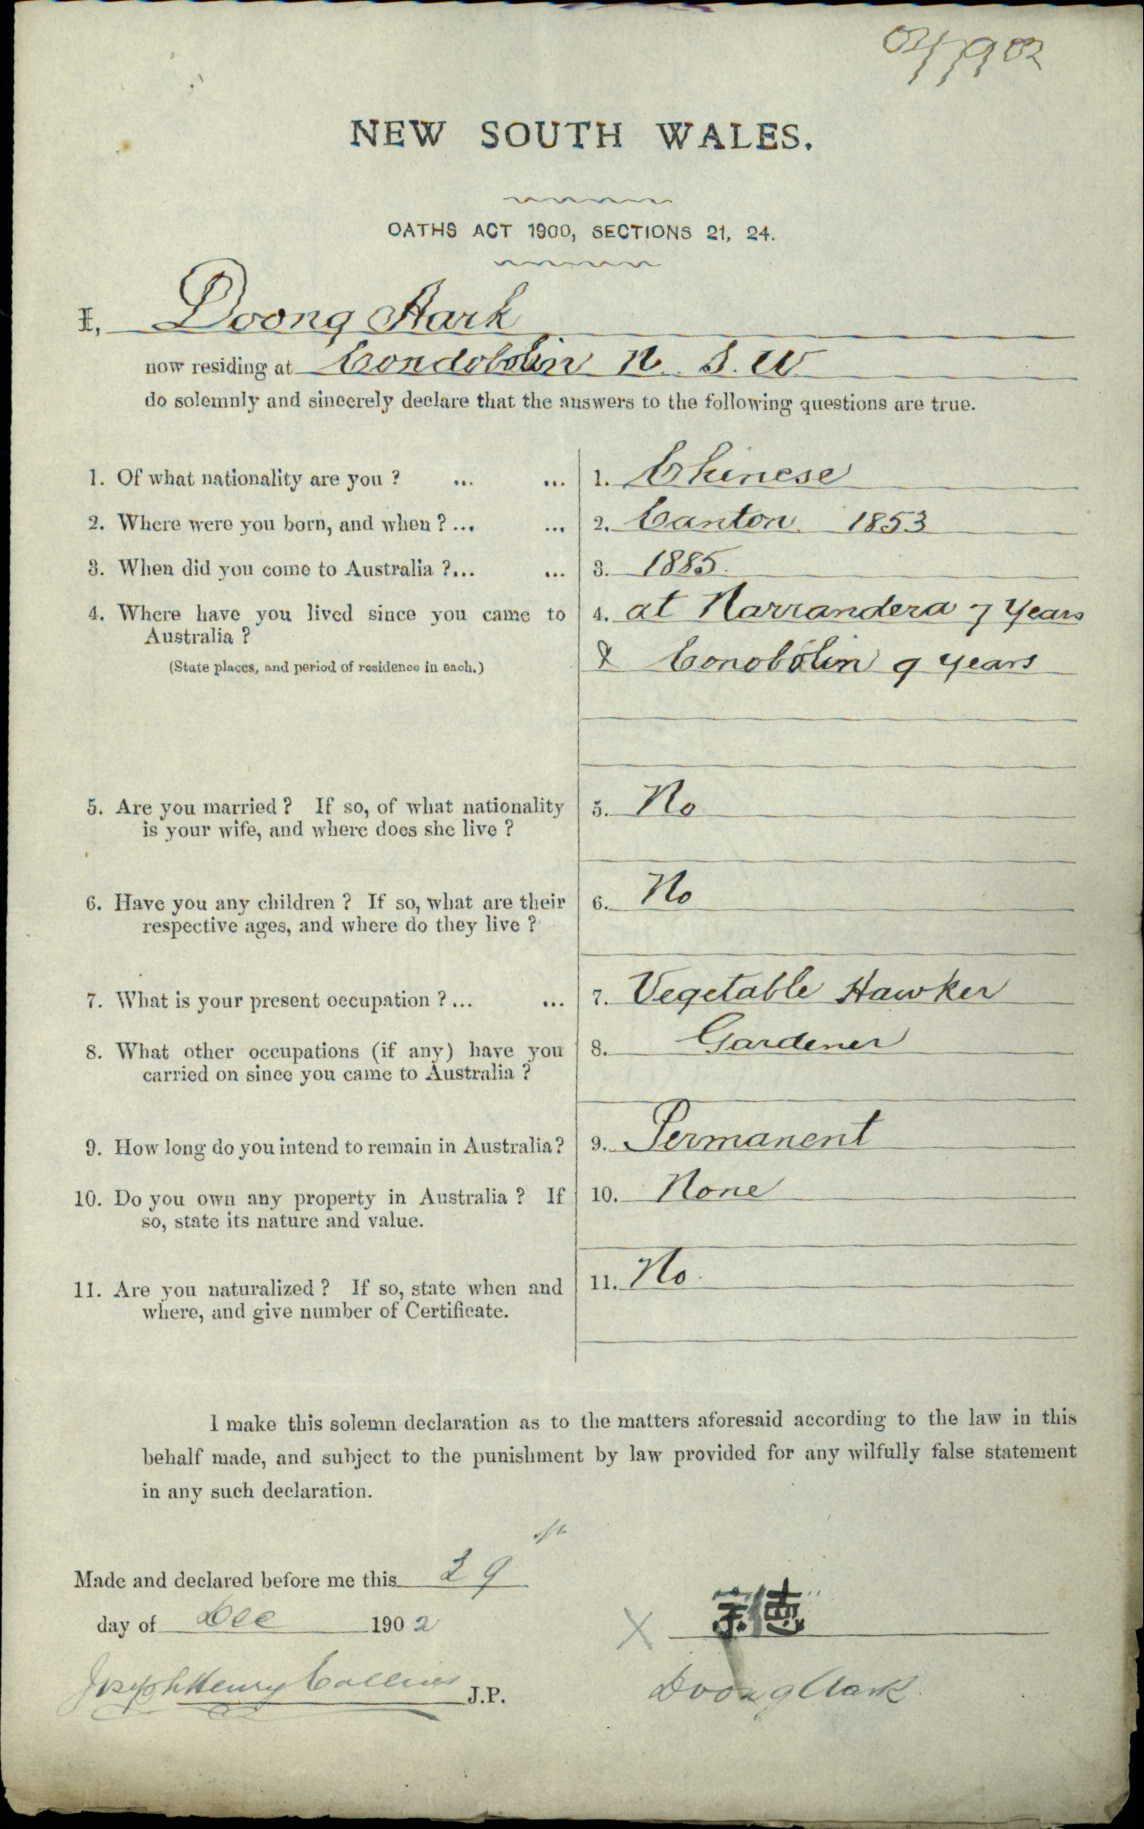 NEW SOUTH WALES.
OATHS ACT 1900, SECTIONS 21, 24.
I, Doong Hark
now residing at Condobolin N. S. W
do solemnly and sincerely declare that the answers to the following questions are true.
1. Of what nationality are you ? ... ... 1. Chinese
2. Where were you born, and when ? ... ... 2. Canton. 1853
3. When did you come to Australia ?... ... 3. 1885.
4. Where have you lived since you came to 4. at Narrandera 7 Years
Australia ?
(State places, and period of residence in each.) & Conobolin 9 years
5. Are you married ? If so, of what nationality 5. No
is your wife, and where does she live ?
6. Have you any children ? If so, what are their 6. No
respective ages, and where do they live ?
7. What is your present occupation ? ... ... 7. Vegetable Hawker
8. What other occupations (if any) have you 8. Gardener
carried on since you came to Australia ?
9. How long do you intend to remain in Australia? 9. Permanent
10. Do you own any property in Australia ? If 10. None
so, state its nature and value.
11. Are you naturalized ? If so, state when and 11. No.
where, and give number of Certificate.
I make this solemn declaration as to the matters aforesaid according to the law in this
behalf made, and subject to the punishment by law provided for any wilfully false statement
in any such declaration.
Made and declared before me this 29
day of Dec 1902 X 德
Joseph Henry Collins J.P. Doong Hark